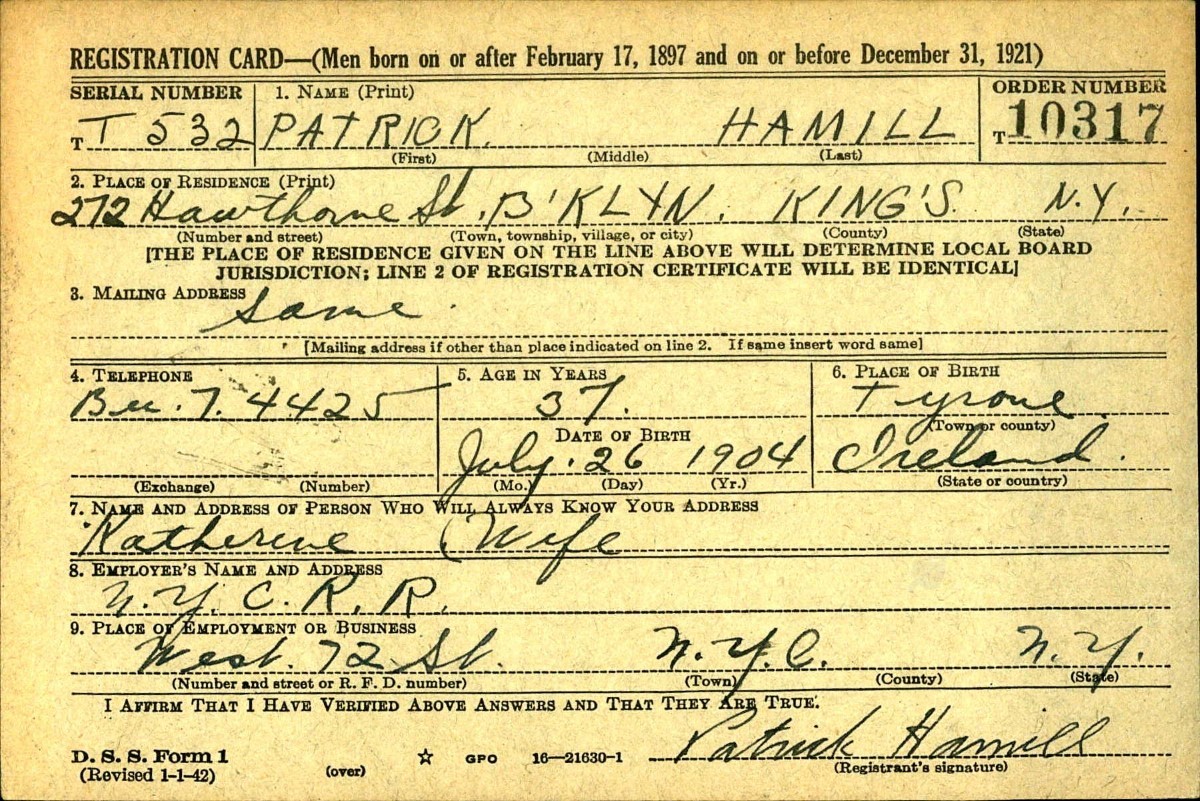 REGISTRATION CARD—(Men born on or after February 17, 1897 and on or before December 31, 1921)
SERIAL NUMBER 1. NAME (Print) ORDER NUMBER
T T 532 PATRICK. HAMILL T 10317
(First) (Middle) (Last)
2. PLACE OF RESIDENCE (Print)
272 Hawthorne St. B'KLYN. KING'S. N.Y.
(Number and street) (Town, township, village, or city) (County) (State)
[THE PLACE OF RESIDENCE GIVEN ON THE LINE ABOVE WILL DETERMINE LOCAL BOARD
JURISDICTION; LINE 2 OF REGISTRATION CERTIFICATE WILL BE IDENTICAL]
3. MAILING ADDRESS
Same.
[Mailing address if other than place indicated on line 2. If same insert word same]
4. TELEPHONE 5. AGE IN YEARS 6. PLACE OF BIRTH
Bu. 7. 4425 37. Tyrone.
(Town or county)
DATE OF BIRTH
July. 26 1904 Ireland.
(Exchange) (Number) (Mo.) (Day) (Yr.) (State or country)
7. NAME AND ADDRESS OF PERSON WHO WILL ALWAYS KNOW YOUR ADDRESS
Katherine (Wife
8. EMPLOYER'S NAME AND ADDRESS
N.Y.C.R.R.
9. PLACE OF EMPLOYMENT OR BUSINESS
West. 72 St. N.Y.C. N.Y.
(Number and street or R. F. D. number) (Town) (County) (State)
I AFFIRM THAT I HAVE VERIFIED ABOVE ANSWERS AND THAT THEY ARE TRUE.
Patrick Hamill
D. S. S. Form 1 ☆ GPO 16—21630-1 (Registrant's signature)
(Revised 1-1-42) (over)